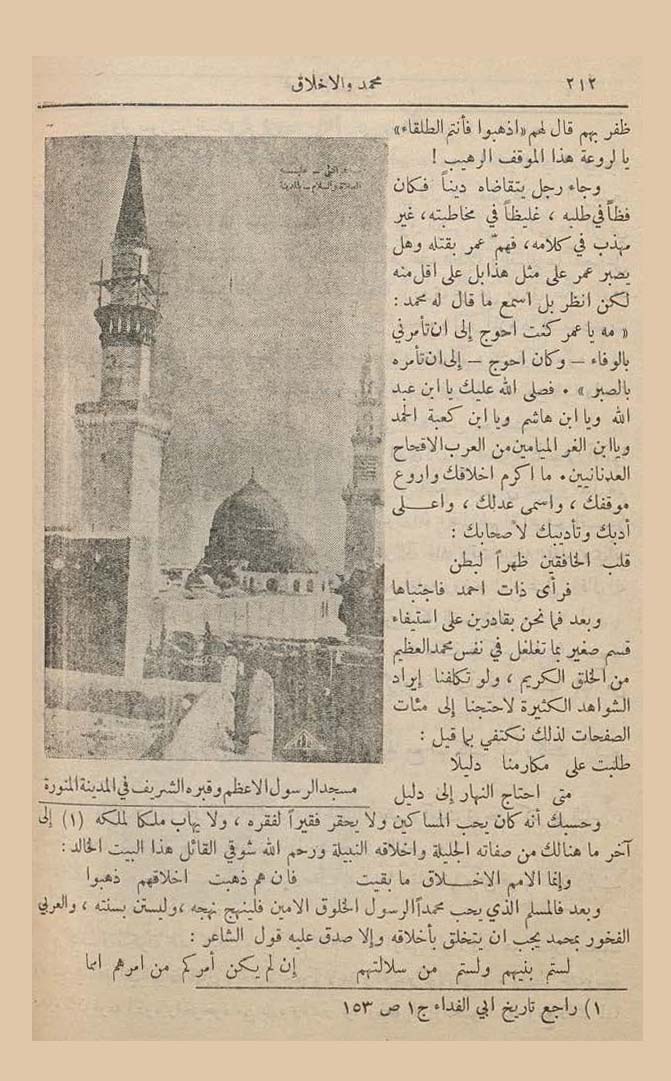 ٢١٢
محمد والاخلاق
ظفر بهم قال لهم «اذهبوا فأنتم الطلقاء»
يا لروعة هذا الموقف الرهيب !
وجاء رجل يتقاضاه ديناً فكان
فظاً في طلبه ، غليظاً في مخاطبته، غير
مهذب في كلامه، فهمّ عمر بقتله وهل
يصبر عمر على مثل هذا بل على اقل منه
لكن انظر بل اسمع ما قال له محمد :
« مه يا عمر كنت احوج إلى ان تأمرني
بالوفاء — وكان احوج — إلى ان تأمره
بالصبر » . فصلى الله عليك يا ابن عبد
الله ويا ابن هاشم ويا ابن كعبة الحمد
ويا ابن الغر الميامين من العرب الاقحاح
العدنانيين . ما اكرم اخلاقك واروع
موقفك ، واسمى عدلك ، واعـلى
أدبك وتأديبك لأصحابك :
قلب الخافقين ظهراً لبطن
فرأى ذات احمد فاجتباها
وبعد فما نحن بقادرين على استيفاء
قسم صغير بما تغلغل في نفس محمد العظيم
من الخلق الكريم ، ولو تكلفنا إيراد
الشواهد الكثيرة لاحتجنا إلى مئات
الصفحات لذلك نكتفي بما قيل :
طلبت على مكارمنا دليلا
متى احتاج النهار إلى دليل
الصلاة والسلام – بالمدينة
مسجد الرسول الاعظم وقبره الشريف في المدينة المنورة
وحسبك أنه كان يحب المساكين ولا يحقر فقيراً لفقره ، ولا يهاب ملكا لملكه (١) إلى
آخر ما هنالك من صفاته الجليلة واخلاقه النبيلة ورحم الله شوقي القائل هذا البيت الخالد :
وإنما الامم الاخـلاق ما بقيت فان هم ذهبت اخلاقهم ذهبوا
وبعد فالمسلم الذي يحب محمداً الرسول الخلوق الامين فلينهج نهجه ، وليستن بسنته ، والعربي
الفخور بمحمد يجب ان يتخلق بأخلاقه وإلا صدق عليه قول الشاعر :
لستم بنيهم ولستم من سلالتهم إن لم يكن أمركم من امرهم امما
١) راجع تاريخ ابي الفداء ج١ ص ١٥٣